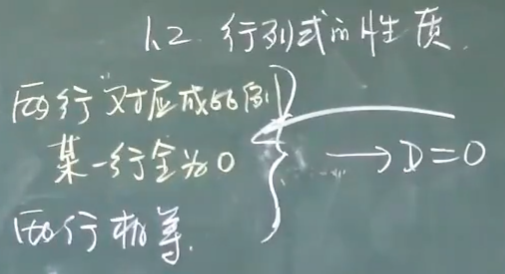 1.2 行列式的性质.
两行对应成比例
某一行全为0
→D=0
两行相等.